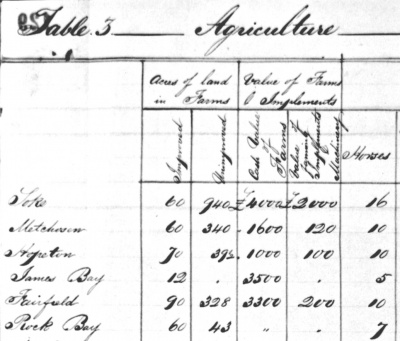 Table 3 Agriculture
Acres of land in Farms
Value of Farms & Implements
Improved
Unimproved
Cash Value of Farms
Value of Implements Machinery
Horses
Soke 60 940 £4000 £2000 16
Metchosin 60 340 1600 120 10
70 1000 100 10
James Bay 12 . 3500 . 5
Fairfield 90 328 3300 200 10
Rock Bay 60 43 " . 7